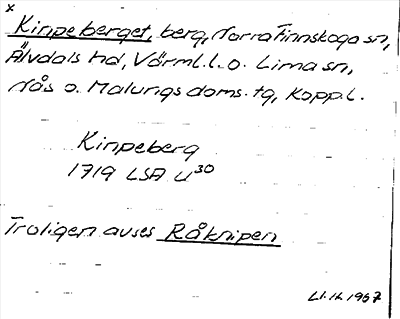 x
Kinpeberget, berg, Norra Finnskoga sn,
Älvdals hd, Värml.l. o. Lima sn,
Nås o. Malungs doms. tg, Kopp.l.
Kinpeberg
1719 LSA U30
Troligen avses Råknipen
1967